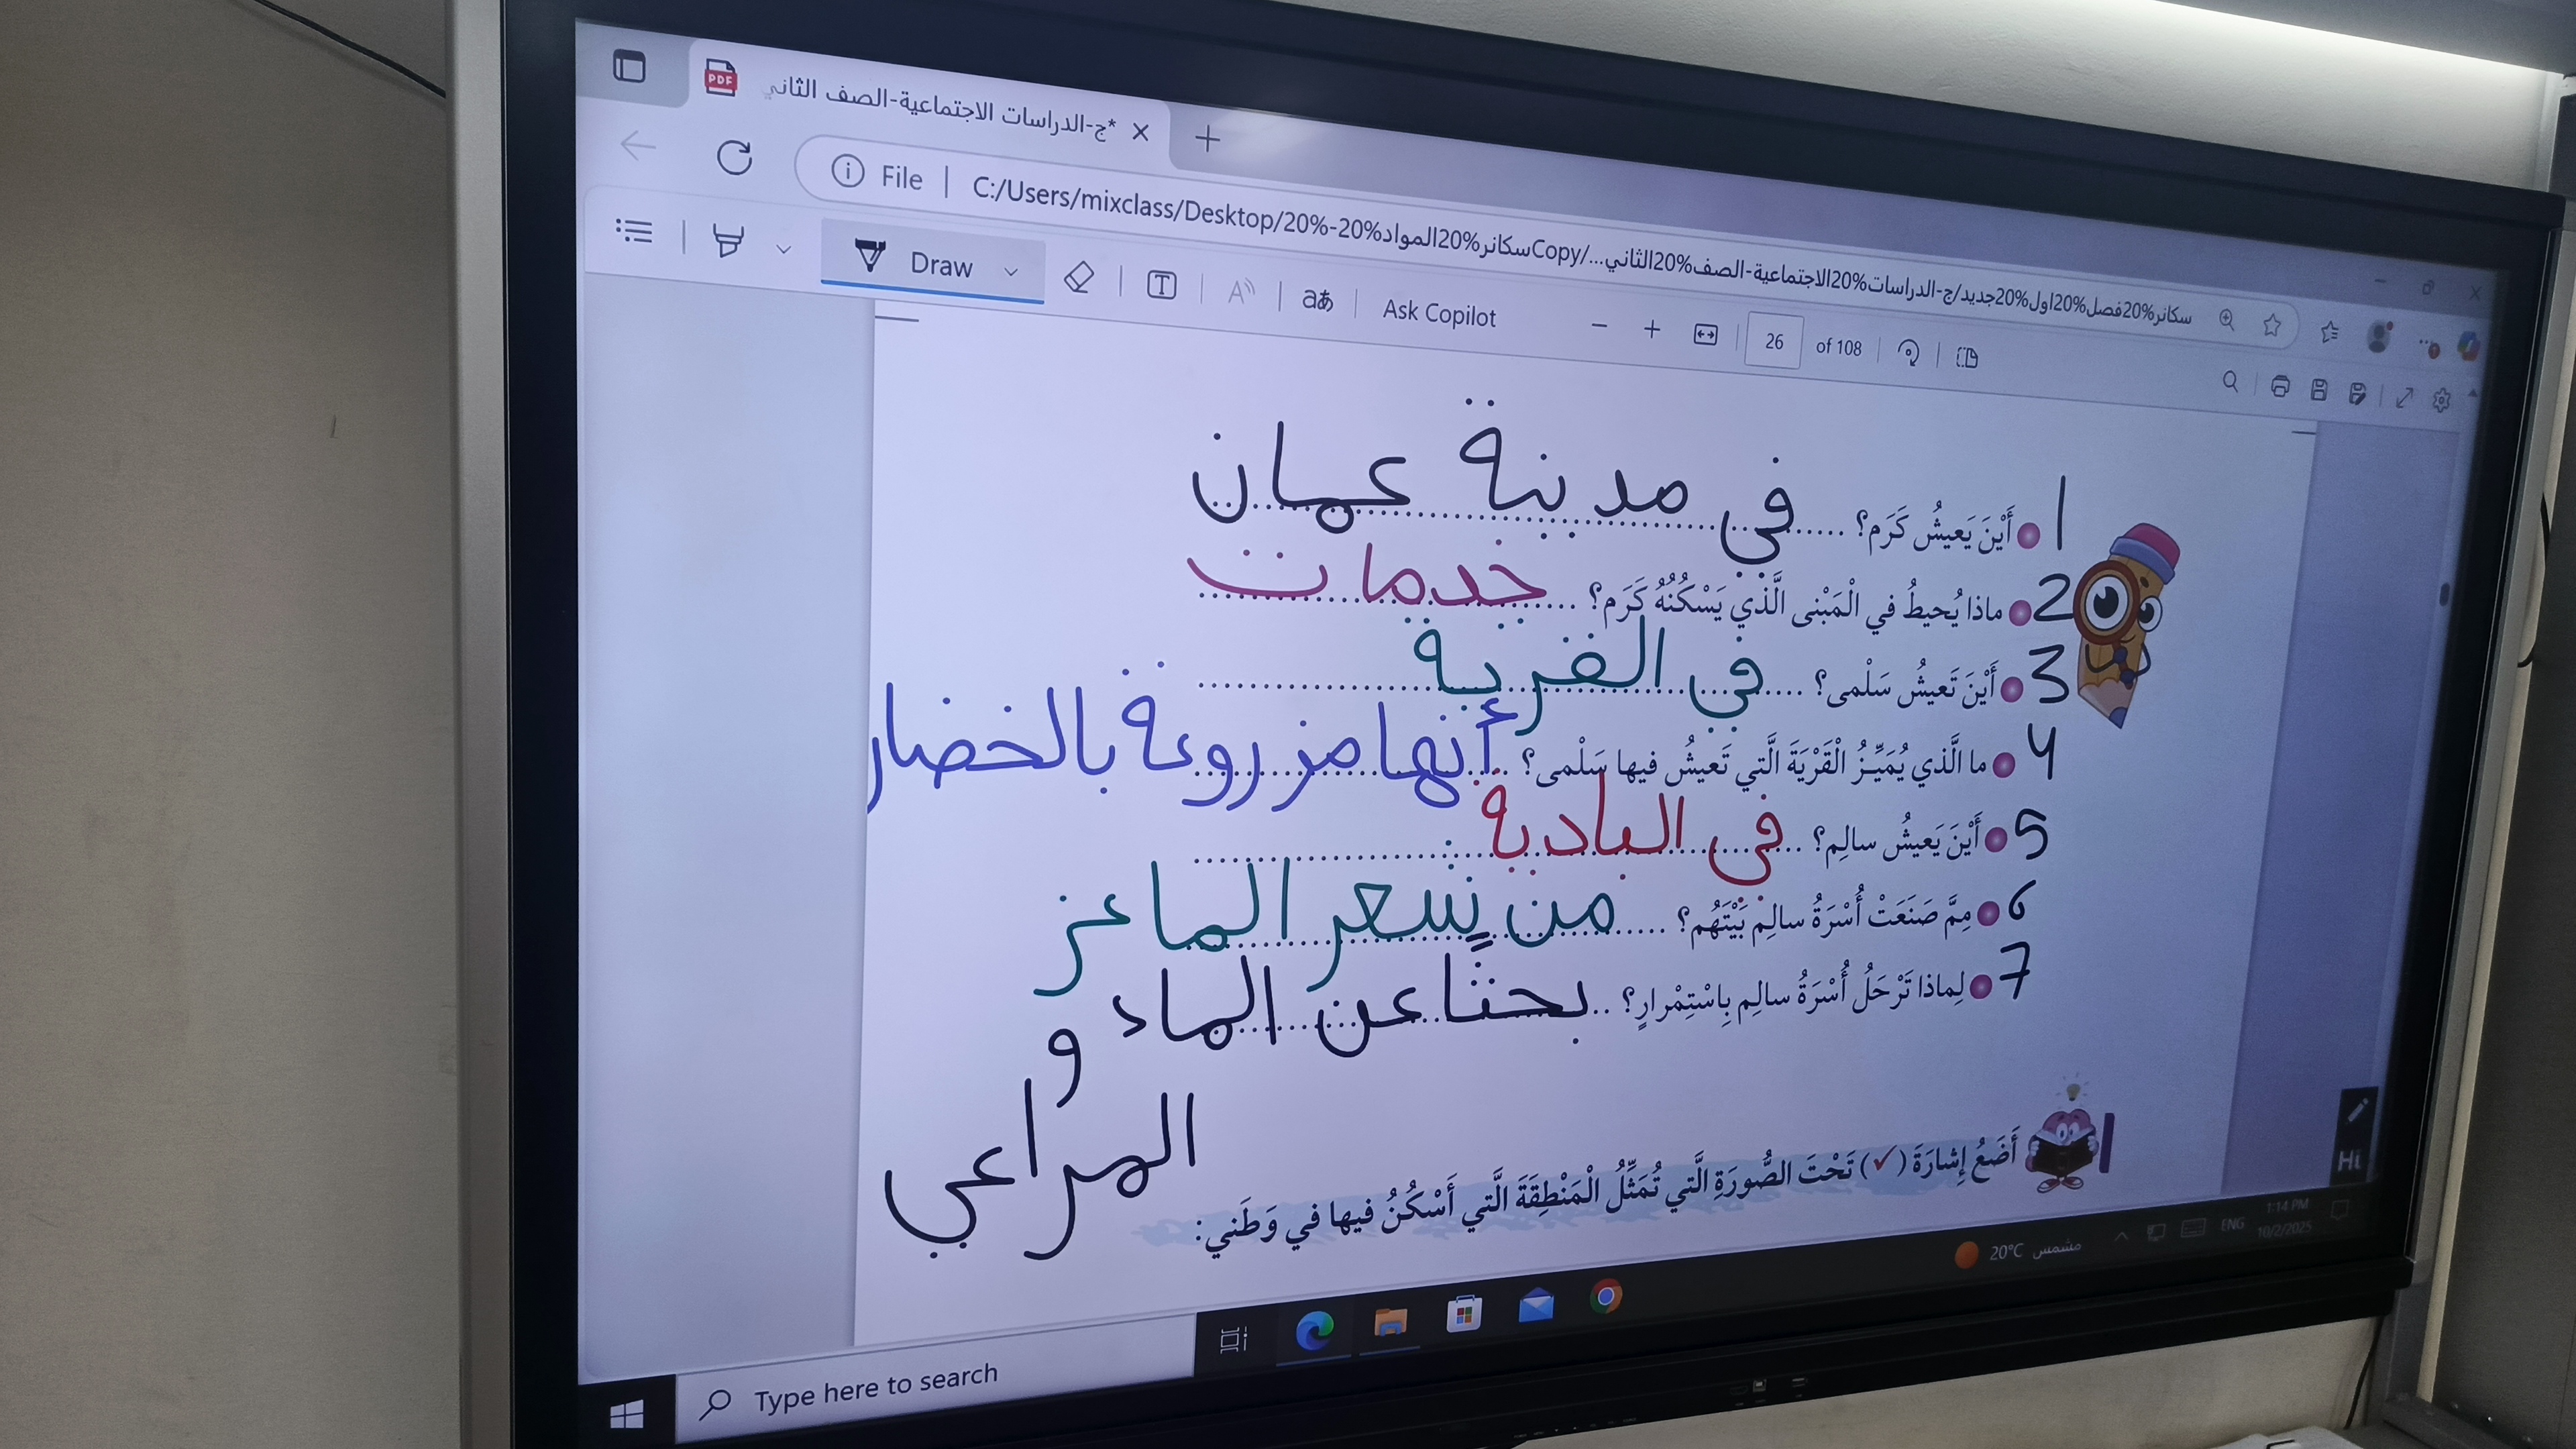 *ج-الدراسات الاجتماعية-الصف الثاني
File C:/Users/mixclass/Desktop/20%-20%سكانر%20الموادCopy/...سكانر%20فصل%20اول%20جديد/ج-الدراسات%20الاجتماعية-الصف%20الثاني
Draw Ask Copilot 26 of 108
1 أَيْنَ يَعيشُ كَرَم؟ في مدينة عمان
2 ماذا يُحيطُ في الْمَبْنى الَّذي يَسْكُنُهُ كَرَم؟ خدمات
3 أَيْنَ تَعيشُ سَلْمى؟ في القرية
4 ما الَّذي يُمَيِّزُ الْقَرْيَةَ الَّتي تَعيشُ فيها سَلْمى؟ أنها مزروعة بالخضار
5 أَيْنَ يَعيشُ سالِم؟ في البادية
6 مِمَّ صَنَعَتْ أُسْرَةُ سالِم بَيْتَهُم؟ من شعر الماعز
7 لِماذا تَرْحَلُ أُسْرَةُ سالِم بِاسْتِمْرارٍ؟ بحثا عن الماء و
المراعي
أَضَعُ إِشارَةَ (✓) تَحْتَ الصُّورَةِ الَّتي تُمَثِّلُ الْمَنْطِقَةَ الَّتي أَسْكُنُ فيها في وَطَني:
Hi
20°C مشمس ENG 1:14 PM
10/2/2025
Type here to search